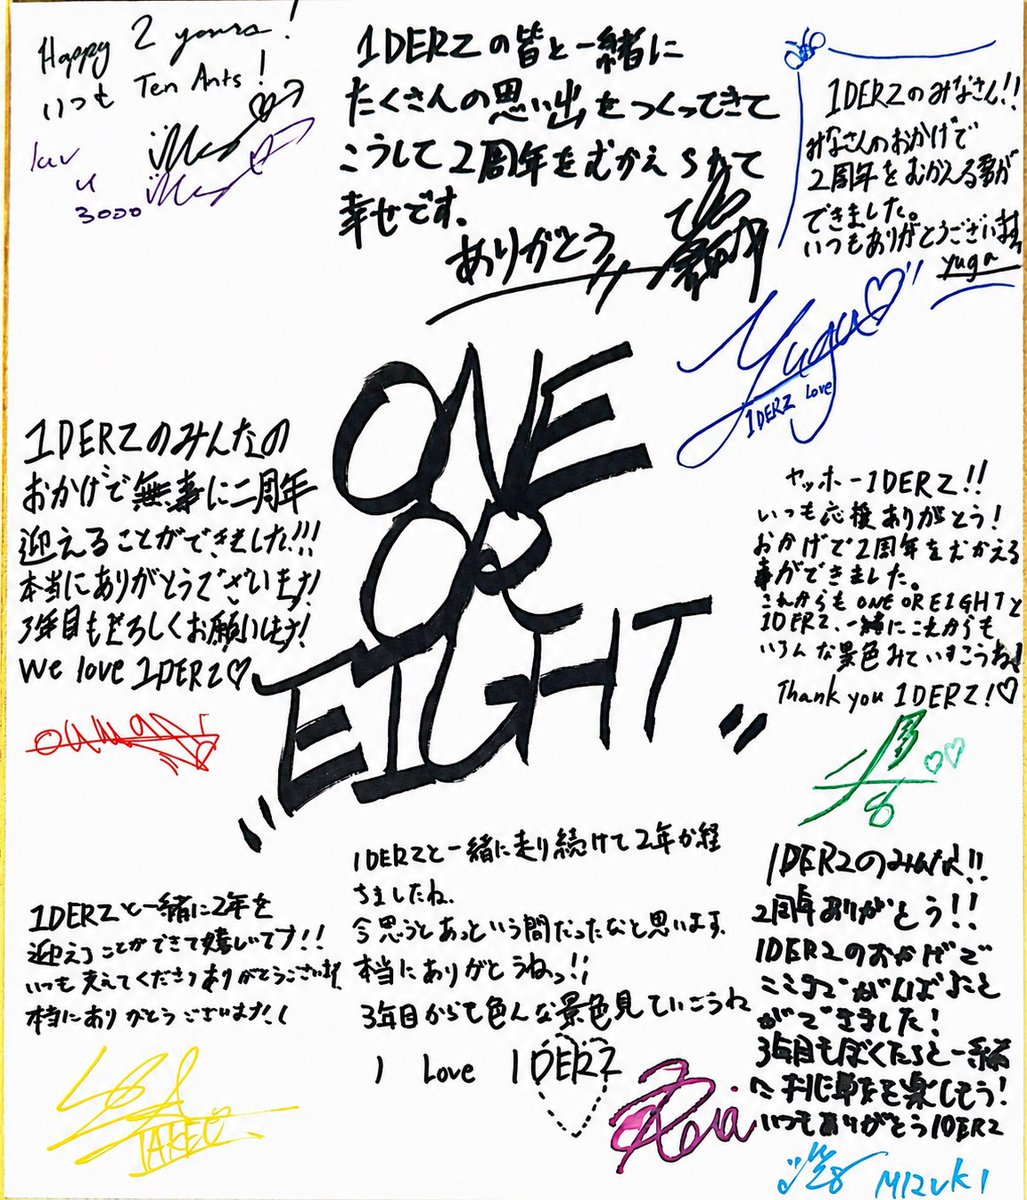 Happy 2 years!
いつも Ten Ants!
luv
u
3000
1DERZの皆と一緒に
たくさんの思い出をつくってきて
こうして2周年をむかえられて
幸せです。
ありがとう
1DERZのみなさん!!
みなさんのおかげで
2周年をむかえる事が
できました。
いつもありがとうございます
yuga
Yuga
1DERZ Love
ONE
OR
EIGHT
1DERZのみんなの
おかげで無事に二周年
迎えることができました!!!
本当にありがとうございます!
3年目もよろしくお願いします!
We love 1DERZ♡
ヤッホー1DERZ!!
いつも応援ありがとう!
おかげで2周年をむかえる
事ができました。
これからもONE OR EIGHTと
1DERZ、一緒にこれからも
いろんな景色みていきこうね!
Thank you 1DERZ!♡
8
1DERZと一緒に2年を
迎えることができて嬉しいです!!
いつも支えてくださりありがとうございます
本当にありがとうございます!
TAKERU
1DERZと一緒に走り続けて2年が経
ちましたね。
今思うとあっという間だったなと思います。
本当にありがとうねっ!!
3年目からも色んな景色見ていこうね
I Love 1DERZ
Reia
1DERZのみんな!!
2周年ありがとう!!
1DERZのおかげで
ここまでがんばること
ができました!
3年目もぼくたちと一緒
に
楽しもう!
いつもありがとう1DERZ
MIZUKI